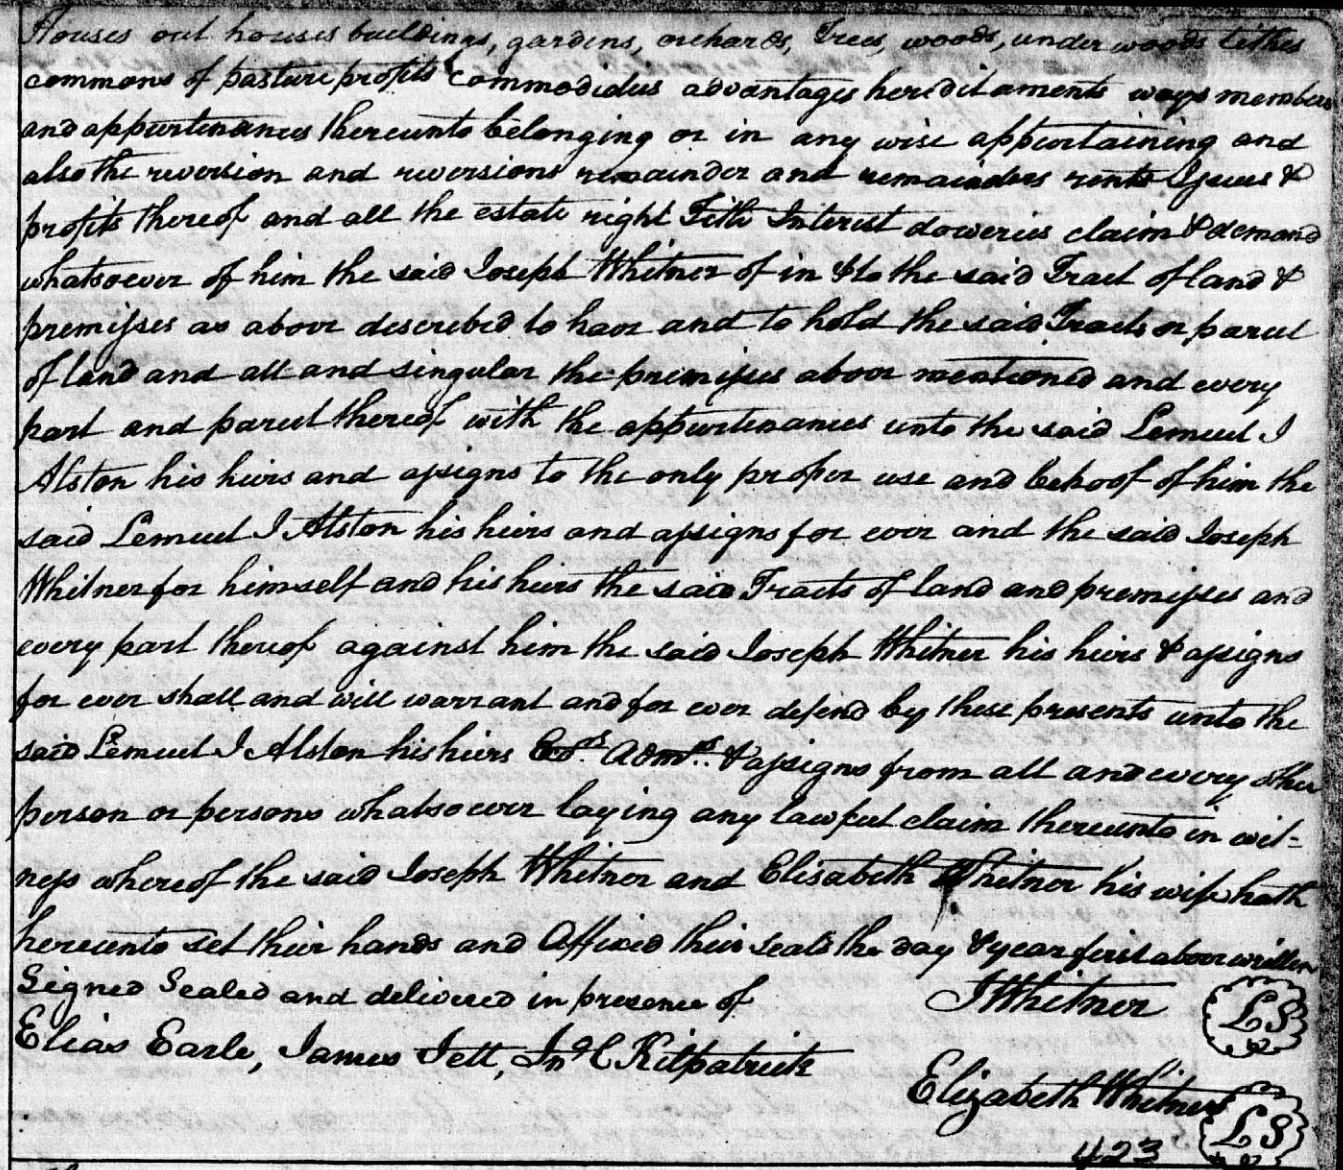 Houses out houses buildings, gardens, orchards, Trees, woods, under woods tithes
commons of pasture profits commodidus advantages heridit aments ways members
and appurtenances thereunto belonging or in any wise appurtaining and
also the reversion and reversions remainder and remainders rents Issues &
profits thereof and all the estate right Title Interist doweries claim & demand
whatsoever of him the said Joseph Whitner of in & to the said Tract of land &
premisses as above described to have and to hold the said Tracts or parcel
of land and all and singular the premisses above mentioned and every
part and parcel thereof with the appurtenances unto the said Lemuel J
Alston his heirs and assigns to the only proper use and behoof of him the
said Lemuel J Alston his heirs and assigns for ever and the said Joseph
Whitner for himself and his heirs the said Tracts of land and premisses and
every part thereof against him the said Joseph Whitner his heirs & assigns
for ever shall and will warrant and for ever defend by these presents unto the
said Lemuel J Alston his heirs Exrs. Admrs. & assigns from all and every other
person or persons whatsoever laying any lawful claim thereunto in wit-
ness whereof the said Joseph Whitner and Elisabeth Whitner his wife hath
hereunto set their hands and Affixed their seals the day & year first above written
Signed Sealed and delivered in presence of J Whitner LS
Elias Earle, James Jett, Jno C Kilpatrick
Elizabeth Whitner LS
423